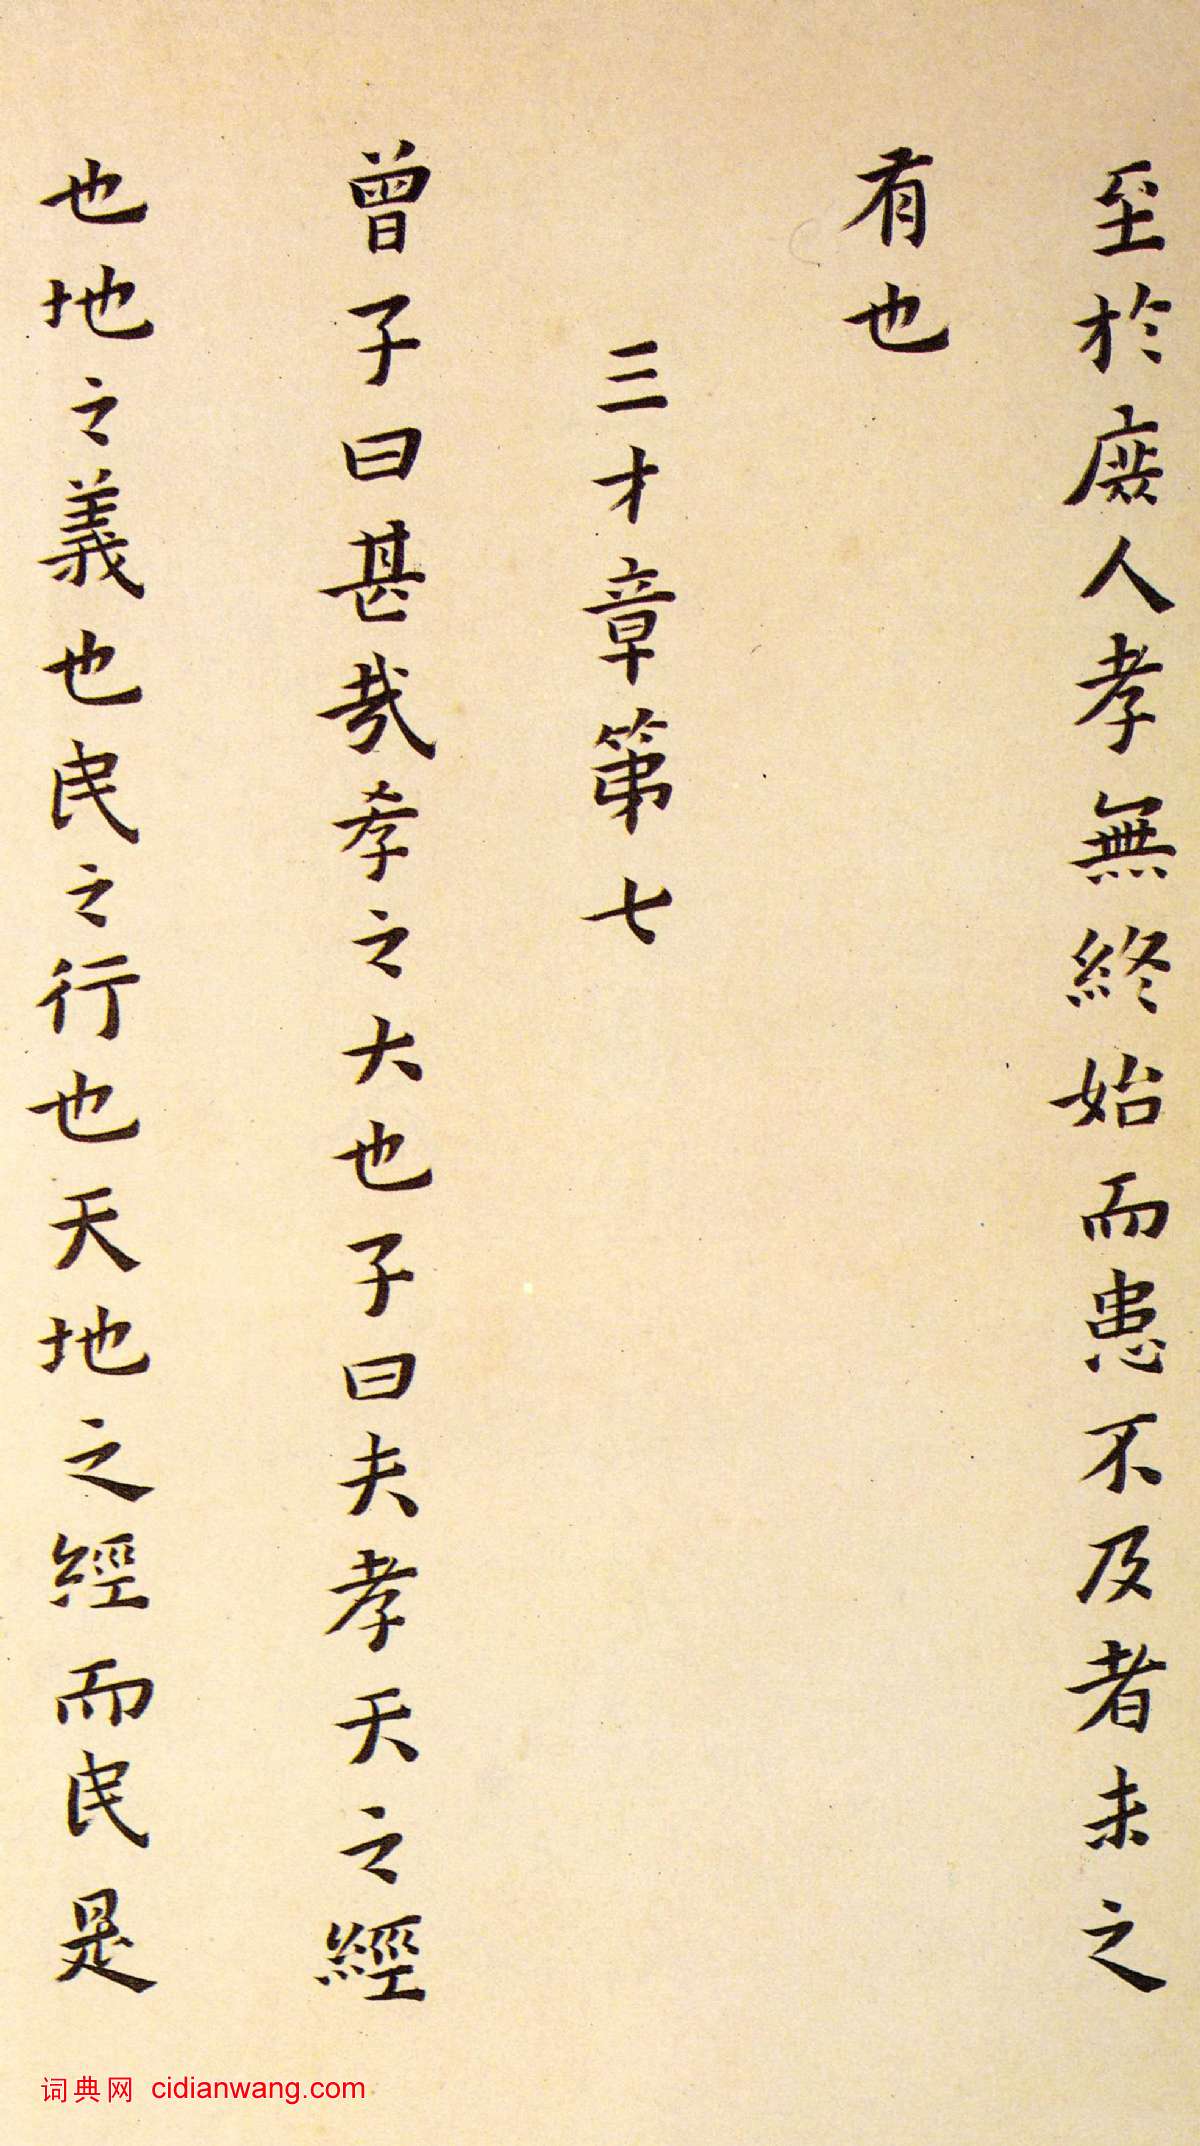 至於庶人孝無終始而患不及者未之
有也
三才章第七
曾子曰甚哉孝之大也子曰夫孝天之經
也地之義也民之行也天地之經而民是
词典网 cidianwang.com